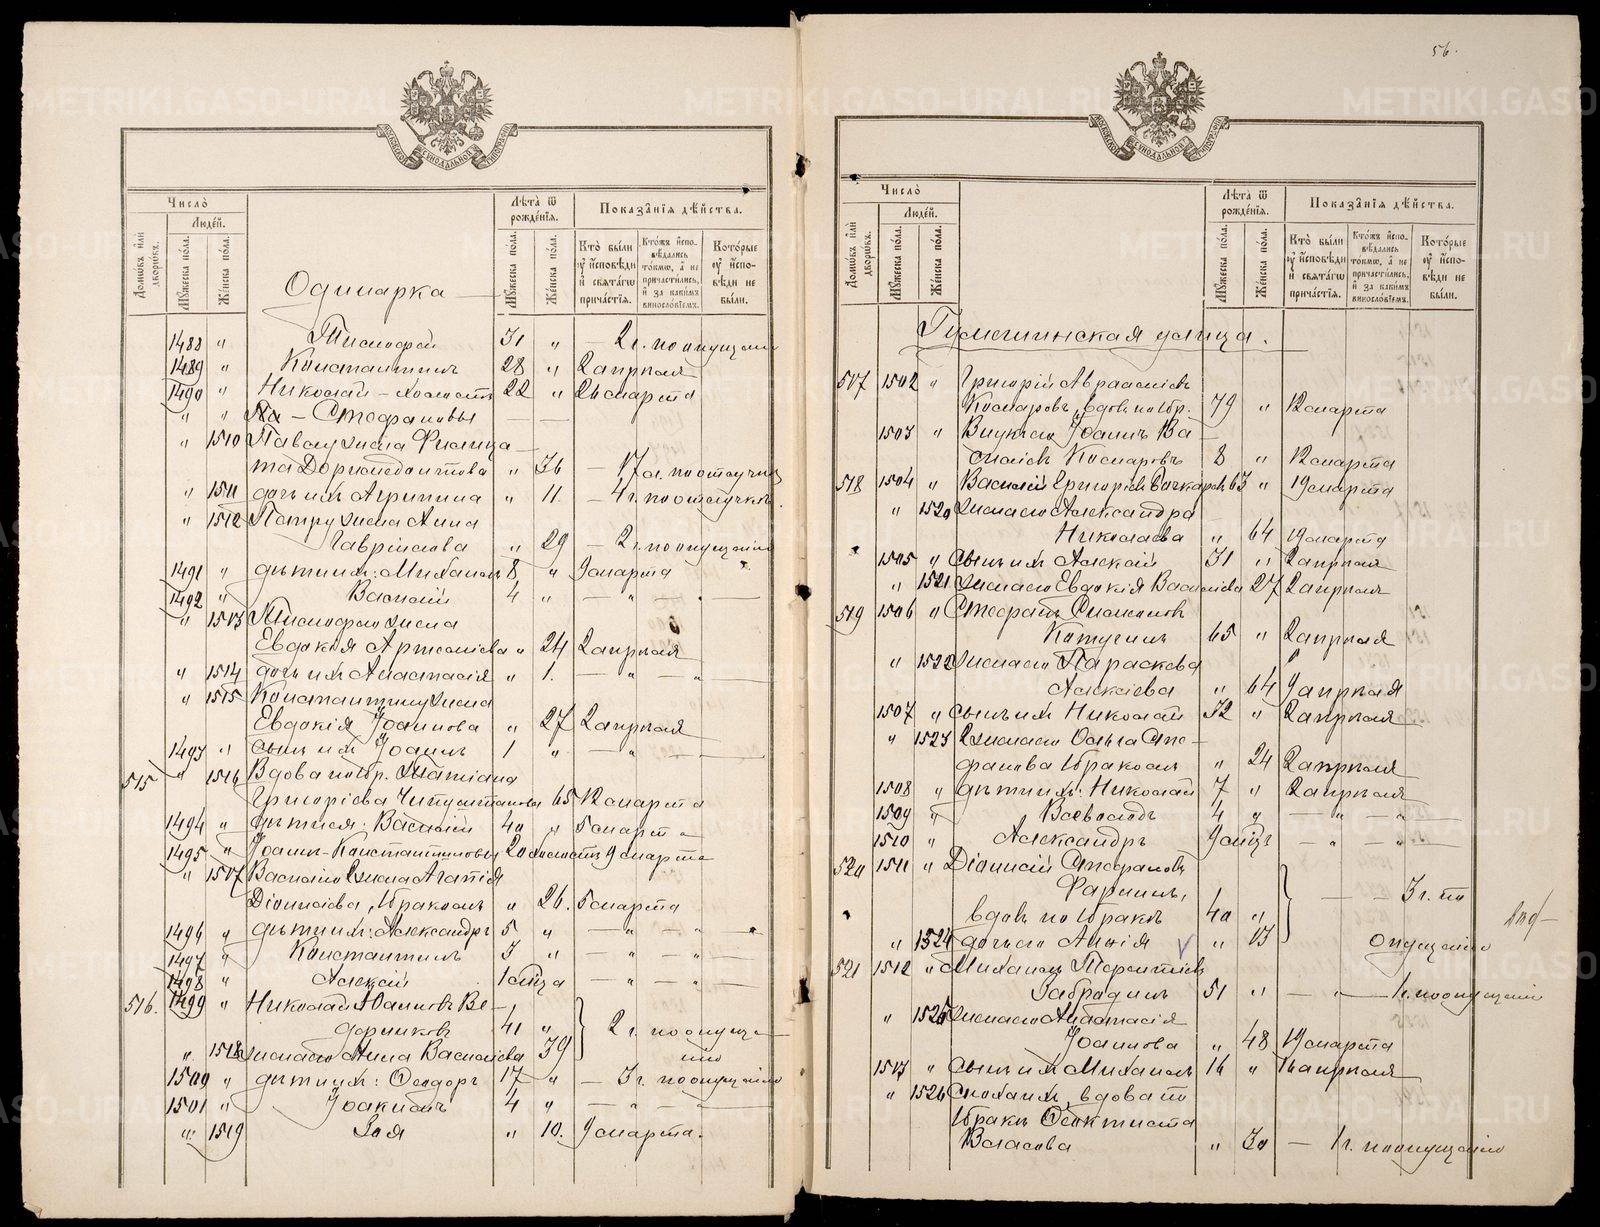 56.
Число̀
Людéй.
Домѡвъ и҆лѝ дворѡвъ.
Мꙋ́жеска по́ла.
Же́нска по́ла.
Лѣ́та ѿ рожде́нїѧ.
Мꙋ́жеска по́ла.
Же́нска по́ла.
Показа̑нїѧ дѣ́йства.
Кто̀ бы́ли ᲂу҆ и҆́сповѣди и҆ свѧта́гѡ прича́стїѧ.
Кто́жъ и҆сповѣ́дались то́кмѡ, а҆ не причасти́лись, и҆ за каки́мъ винослові́емъ.
Кото́рые ᲂу҆ и҆́споведи не бы́ли.
Одинарка
1488 " Тимофей 31 " — 2 г. по опущению
1489 " Константинъ 28 " 2 апрѣля
1490 " Николай – холостъ 22 " 26 марта
" " – Стефановы — —
" 1510 Павлу жена Филица-
та Дормедонтова " 36 – 17 л. по отлучкѣ
" 1511 дочь ихъ Агрипина " 11. – 4 г. по отлучкѣ
" 1512 Петру жена Анна
Гавріилова " 29 – 2 г. по опущению
1491 " дѣти ихъ: Михаилъ 8 " 9 марта
1492 " Василій 4 " — " — " —
" 1513 Тимофею жена
Евдокія Артемиева " 24 2 апрѣля
" 1514 дочь ихъ Анастасія " 1. — " — " —
" 1515 Константину жена
Евдокія Іоаннова " 27 2 апрѣля
1493 " сынъ ихъ Іоаннъ 1 " — " — " —
515 " 1516 Вдова по 1 бр. Татіана
Григоріева 65 12 марта
1494 " дѣти ея: Василій 40 " 5 марта
1495 " Іоаннъ – Константиновы 20 холостъ 9 марта
" 1517 Василію жена Агапія
Діонисіева, 1 бракомъ " 26. 5 марта
1496 " дѣти ихъ: Александръ 5 " — " — " —
1497 " Константинъ 3 " — " — " —
1498 " Алексій 1 мѣсяца — " — " —
516. 1499 " Николай Іоанновъ Ве-
дерниковъ 41 " 2 г. по опуще-
" 1518 Жена его Анна Василіева 39 нію
1500 " дѣти ихъ: Ѳеодоръ 17 " – 3 г. по опущению
1501 " Іоакимъ 4 " — " — " —
" 1519 Зоя " 10. 9 марта.
Число̀
Людéй.
Домѡвъ и҆лѝ дворѡвъ.
Мꙋ́жеска по́ла.
Же́нска по́ла.
Лѣ́та ѿ рожде́нїѧ.
Мꙋ́жеска по́ла.
Же́нска по́ла.
Показа̑нїѧ дѣ́йства.
Кто̀ бы́ли ᲂу҆ и҆́сповѣди и҆ свѧта́гѡ прича́стїѧ.
Кто́жъ и҆сповѣ́дались то́кмѡ, а҆ не причасти́лись, и҆ за каки́мъ винослові́емъ.
Кото́рые ᲂу҆ и҆́споведи не бы́ли.
улица.
517 1502 " Григорій Авраамовъ
Комаровъ, вдовъ по 1 бр. 79 " 12 марта
1503 " Внукъ его Іоаннъ Ва-
силіевъ Комаровъ 8 " 12 марта
518 1504 " Василій Григоріевъ 63 " 19 марта
" 1520 Жена его Александра
Николаева " 64 19 марта
1505 " Сынъ ихъ Алексій 31 " 2 апрѣля
" 1521 Жена его Евдокія Василіева 27 2 апрѣля
519 1506 " Стефанъ Симеоновъ
65 " 2 апрѣля
" 1522 Жена его Параскева
Алексіева " 64 9 апрѣля
1507 " Сынъ ихъ Николай 32 " 2 апрѣля
" 1523 Жена его Ольга Сте-
фанова 1 бракомъ " 24 2 апрѣля
1508 " дѣти ихъ: Николай 7 " 2 апрѣля
1509 " Всеволодъ 4 " — " — " —
1510 " Александръ 9 мѣсяцъ — " — " —
520 1511 " Діонисій Стефановъ
Фарнинъ,
вдовъ по 1 бракѣ 40 " — — 3 г. по
" 1524 дочь его Анния " 13 опущению
521 1512 " Михаилъ Терентіевъ
Забродинъ 51 " — " — 1 г. по опущению
" 1525 Жена его Анастасія
Іоаннова " 48 19 марта
1513 " Сынъ ихъ Михаилъ 16 " 16 апрѣля
" 1526 Сноха ихъ, вдова по
1 бракѣ Ѳеоктиста
Власова " 30 – 1 г. по опущению
METRIKI.GASO-URAL.RU